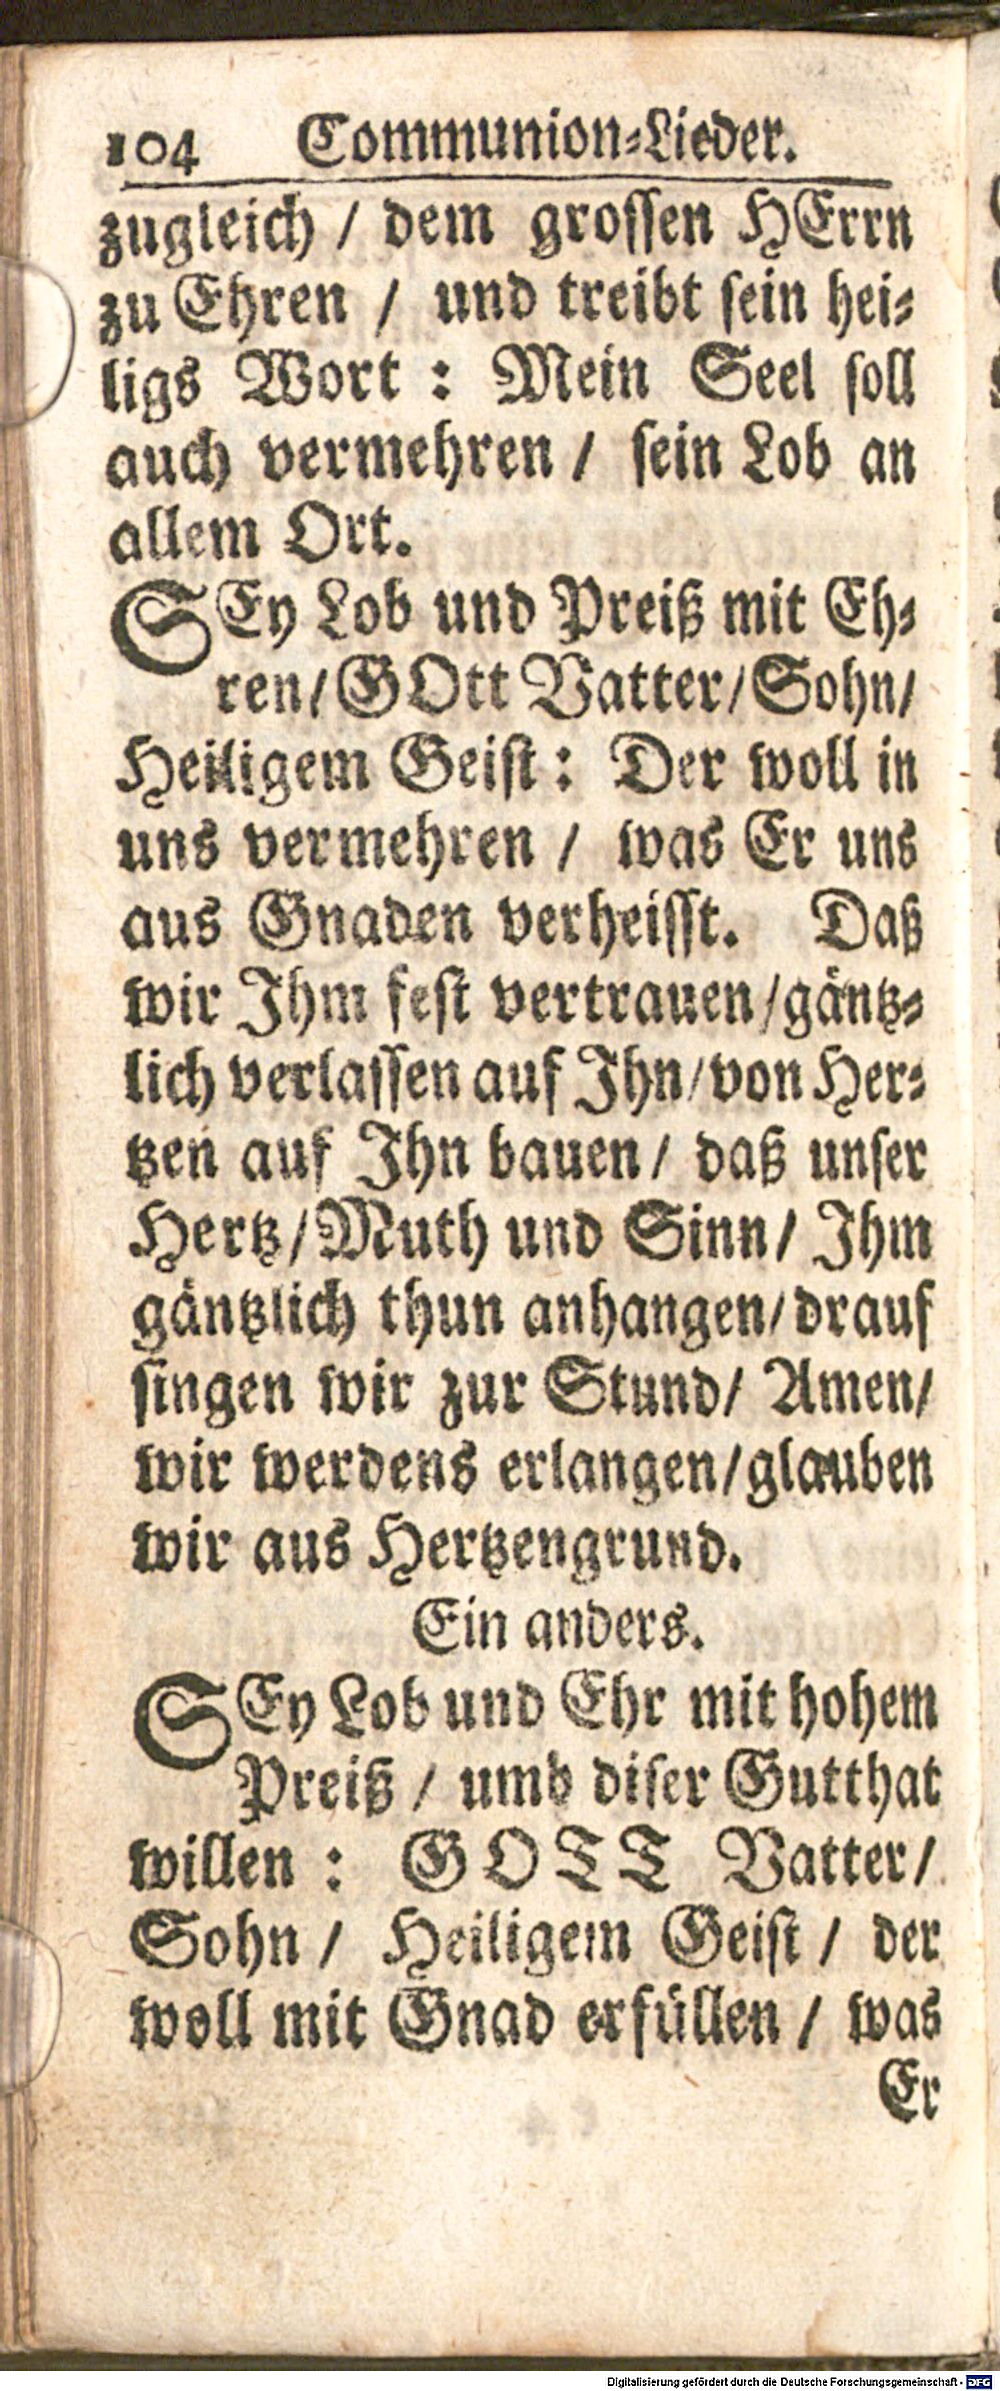 104 Communion-Lieder.
zugleich / dem grossen HErrn
zu Ehren / und treibt sein hei-
ligs Wort : Mein Seel soll
auch vermehren / sein Lob an
allem Ort.
SEy Lob und Preiß mit Eh-
ren/ GOtt Vatter/ Sohn/
Heiligem Geist : Der woll in
uns vermehren / was Er uns
aus Gnaden verheisst. Daß
wir Ihm fest vertrauen/gäntz-
lich verlassen auf Ihn/von Her-
tzen auf Ihn bauen/ daß unser
Hertz/Muth und Sinn/ Ihm
gäntzlich thun anhangen/drauf
singen wir zur Stund/ Amen/
wir werdens erlangen/glauben
wir aus Hertzengrund.
Ein anders.
SEy Lob und Ehr mit hohem
Preiß / umb diser Gutthat
willen : GOTT Vatter/
Sohn / Heiligem Geist / der
woll mit Gnad erfüllen / was
Er
Digitalisierung gefördert durch die Deutsche Forschungsgemeinschaft - DFG